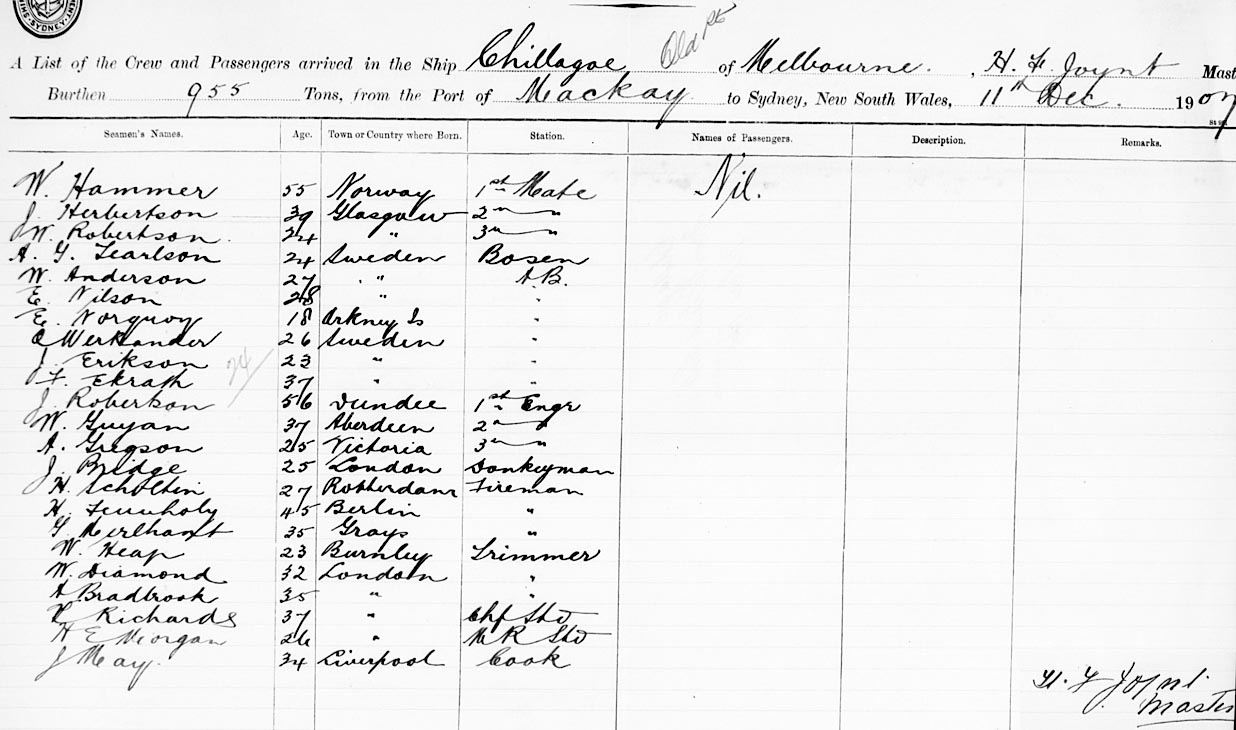 SYDNEY
Old Pt
A List of the Crew and Passengers arrived in the Ship Chillagoe of Melbourne. , H. F. Joynt Mast
Burthen 955 Tons, from the Port of Mackay to Sydney, New South Wales, 11th Dec. 1907
Seamen's Names. Age. Town or Country where Born. Station. Names of Passengers. Description. Remarks.
W. Hammer 55 Norway 1st Mate Nil.
J. Herbertson 39 Glasgow 2nd "
W. Robertson 24 " 3rd "
A. G. Tearlson 24 Sweden Bosen
W. Anderson 27 " A.B.
E. Nilson 28 " "
E. Norquoy 18 Orkney Is "
O Werkander 26 Sweden "
J. Erikson 23 " "
F. Ekrath 37 " "
24/
J. Robertson 56 Dundee 1st Engr
W. Guyan 37 Aberdeen 2nd "
A. Gregson 25 Victoria 3rd "
J. Bridge 25 London Donkeyman
H. Scholtin 27 Rotterdam Fireman
H. 45 Berlin "
G Merlhant 35 Grays "
W. Heap 23 Burnley Trimmer
W. Diamond 32 London "
A Bradbrook 35 " "
Richards 37 " Chf Std
H E Morgan 26 " M R Std
J May. 34 Liverpool Cook
H. F Joynt.
Master